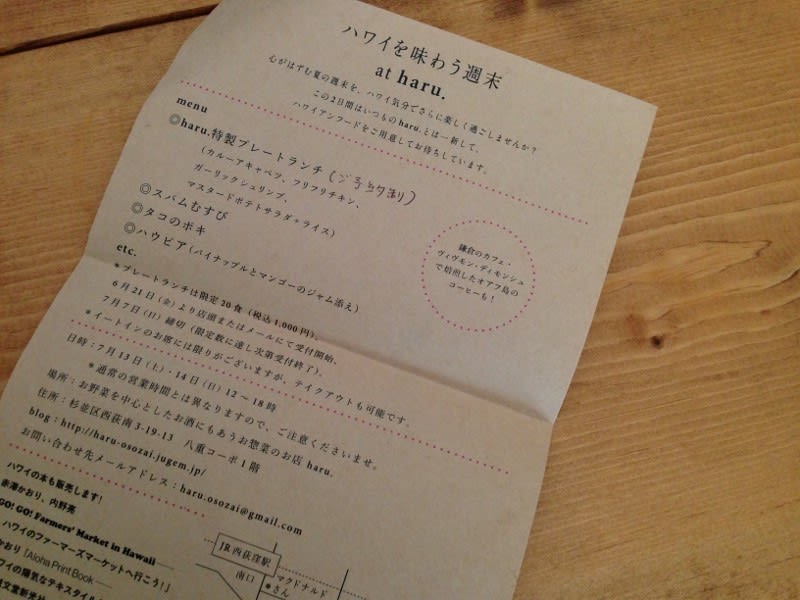 ハワイを味わう週末
at haru.
心がはずむ夏の週末を、ハワイ気分でさらに楽しく過ごしませんか？
この2日間はいつものharu.とは一新して、
ハワイアンフードをご用意してお待ちしています。
menu
◎haru.特製プレートランチ（ご予約制）
（カルーアキャベツ、フリフリチキン、
ガーリックシュリンプ、
マスタードポテトサラダ＋ライス）
◎スパムむすび
◎タコのポキ
◎ハウピア（パイナップルとマンゴーのジャム添え）
etc.
鎌倉のカフェ・
ヴィヴモン・ディモンシュ
で焙煎したオアフ島の
コーヒーも！
＊プレートランチは限定20食（税込1,000円）、
6月21日（金）より店頭またはメールにて受付開始、
7月7日（日）締切（限定数に達し次第受付終了）。
＊イートインのお席には限りがございますが、テイクアウトも可能です。
日時：7月13日（土）・14日（日）12〜18時
＊通常の営業時間とは異なりますので、ご注意くださいませ。
場所：お野菜を中心としたお酒にもあうお惣菜のお店 haru.
住所：杉並区西荻南3-19-13　八重コーポ1階
blog：http://haru-osozai.jugem.jp/
お問い合わせ先メールアドレス：haru.osozai@gmail.com
ハワイの本も販売します！
赤澤かおり、内野亮
GO! GO! Farmers' Market in Hawaii
ハワイのファーマーズマーケットへ行こう！」
かおり「Aloha Print Book
ワイの陽気なテキスタイル
文堂新光社
JR西荻窪駅
南口
マクドナルド
さん